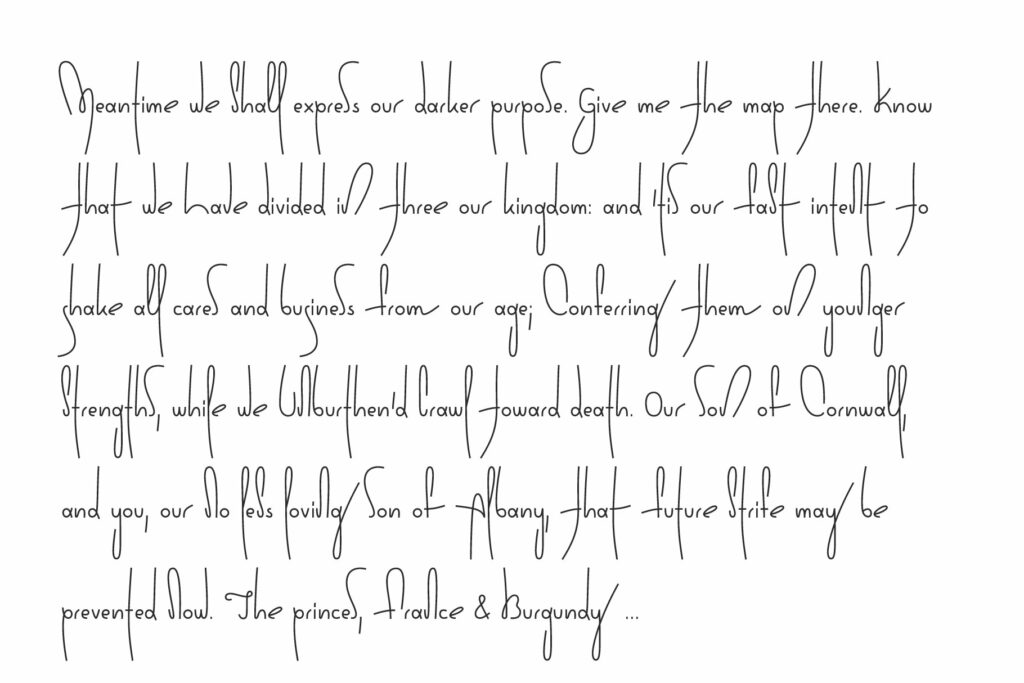 Meantime we shall express our darker purpose. Give me the map there. Know
that we have divided in three our kingdom: and 'tis our fast intent to
shake all cares and business from our age; Conferring them on younger
strengths, while we Unburthen'd crawl toward death. Our son of Cornwall,
and you, our no less loving son of Albany, that future strife may be
prevented now. The princes, France & Burgundy ...